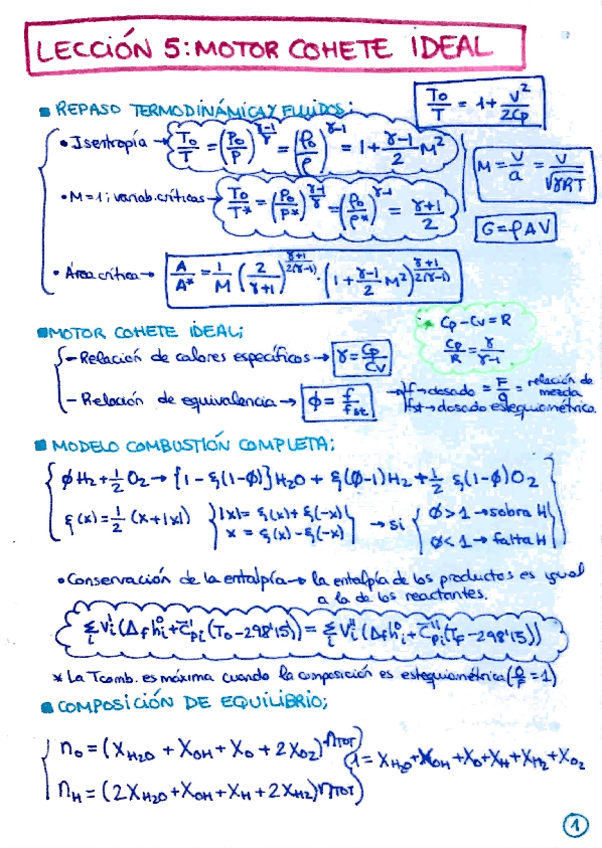 LECCIÓN 5: MOTOR COHETE IDEAL
REPASO TERMODINÁMICA Y FLUIDOS;
T₀/T = 1 + V²/2Cp
• Isentropía → T₀/T = (P₀/P)^((γ-1)/γ) = (ρ₀/ρ)^(γ-1) = 1 + (γ-1)/2 M²
M = V/a = V/√(γRT)
• M=1; variab. críticas → T₀/T* = (P₀/P*)^((γ-1)/γ) = (ρ₀/ρ*)^(γ-1) = (γ+1)/2
G = ρAV
• Área crítica → A/A* = 1/M (2/(γ+1))^((γ+1)/(2(γ-1))) · (1 + (γ-1)/2 M²)^((γ+1)/(2(γ-1)))
MOTOR COHETE IDEAL;
* Cp - Cv = R
Cp/R = γ/(γ-1)
- Relación de calores específicos → γ = Cp/Cv
- Relación de equivalencia → ϕ = f/fst → f → dosado = F/O = relación de mezcla
fst → dosado estequiométrico.
MODELO COMBUSTIÓN COMPLETA;
ϕH₂ + ½O₂ → {1 - ξ(1-ϕ)}H₂O + ξ(ϕ-1)H₂ + ½ ξ(1-ϕ)O₂
ξ(x) = ½ (x+|x|) |x| = ξ(x) + ξ(-x) → si ϕ>1 → sobra H
x = ξ(x) - ξ(-x) ϕ<1 → falta H
• Conservación de la entalpía → la entalpía de los productos es igual
a la de los reactantes.
Σᵢ νᵢ'(Δf hᵢ⁰ + C̄pᵢ'(T₀ - 298'15)) = Σᵢ νᵢ''(Δf hᵢ⁰ + C̄pᵢ''(TF - 298'15))
* La Tcomb. es máxima cuando la composición es estequiométrica (O/F = 1)
COMPOSICIÓN DE EQUILIBRIO;
n_O = (X_H₂O + X_OH + X_O + 2X_O₂)·n_TOT
1 = X_H₂O + X_OH + X_O + X_H + X_H₂ + X_O₂
n_H = (2X_H₂O + X_OH + X_H + 2X_H₂) n_TOT
1